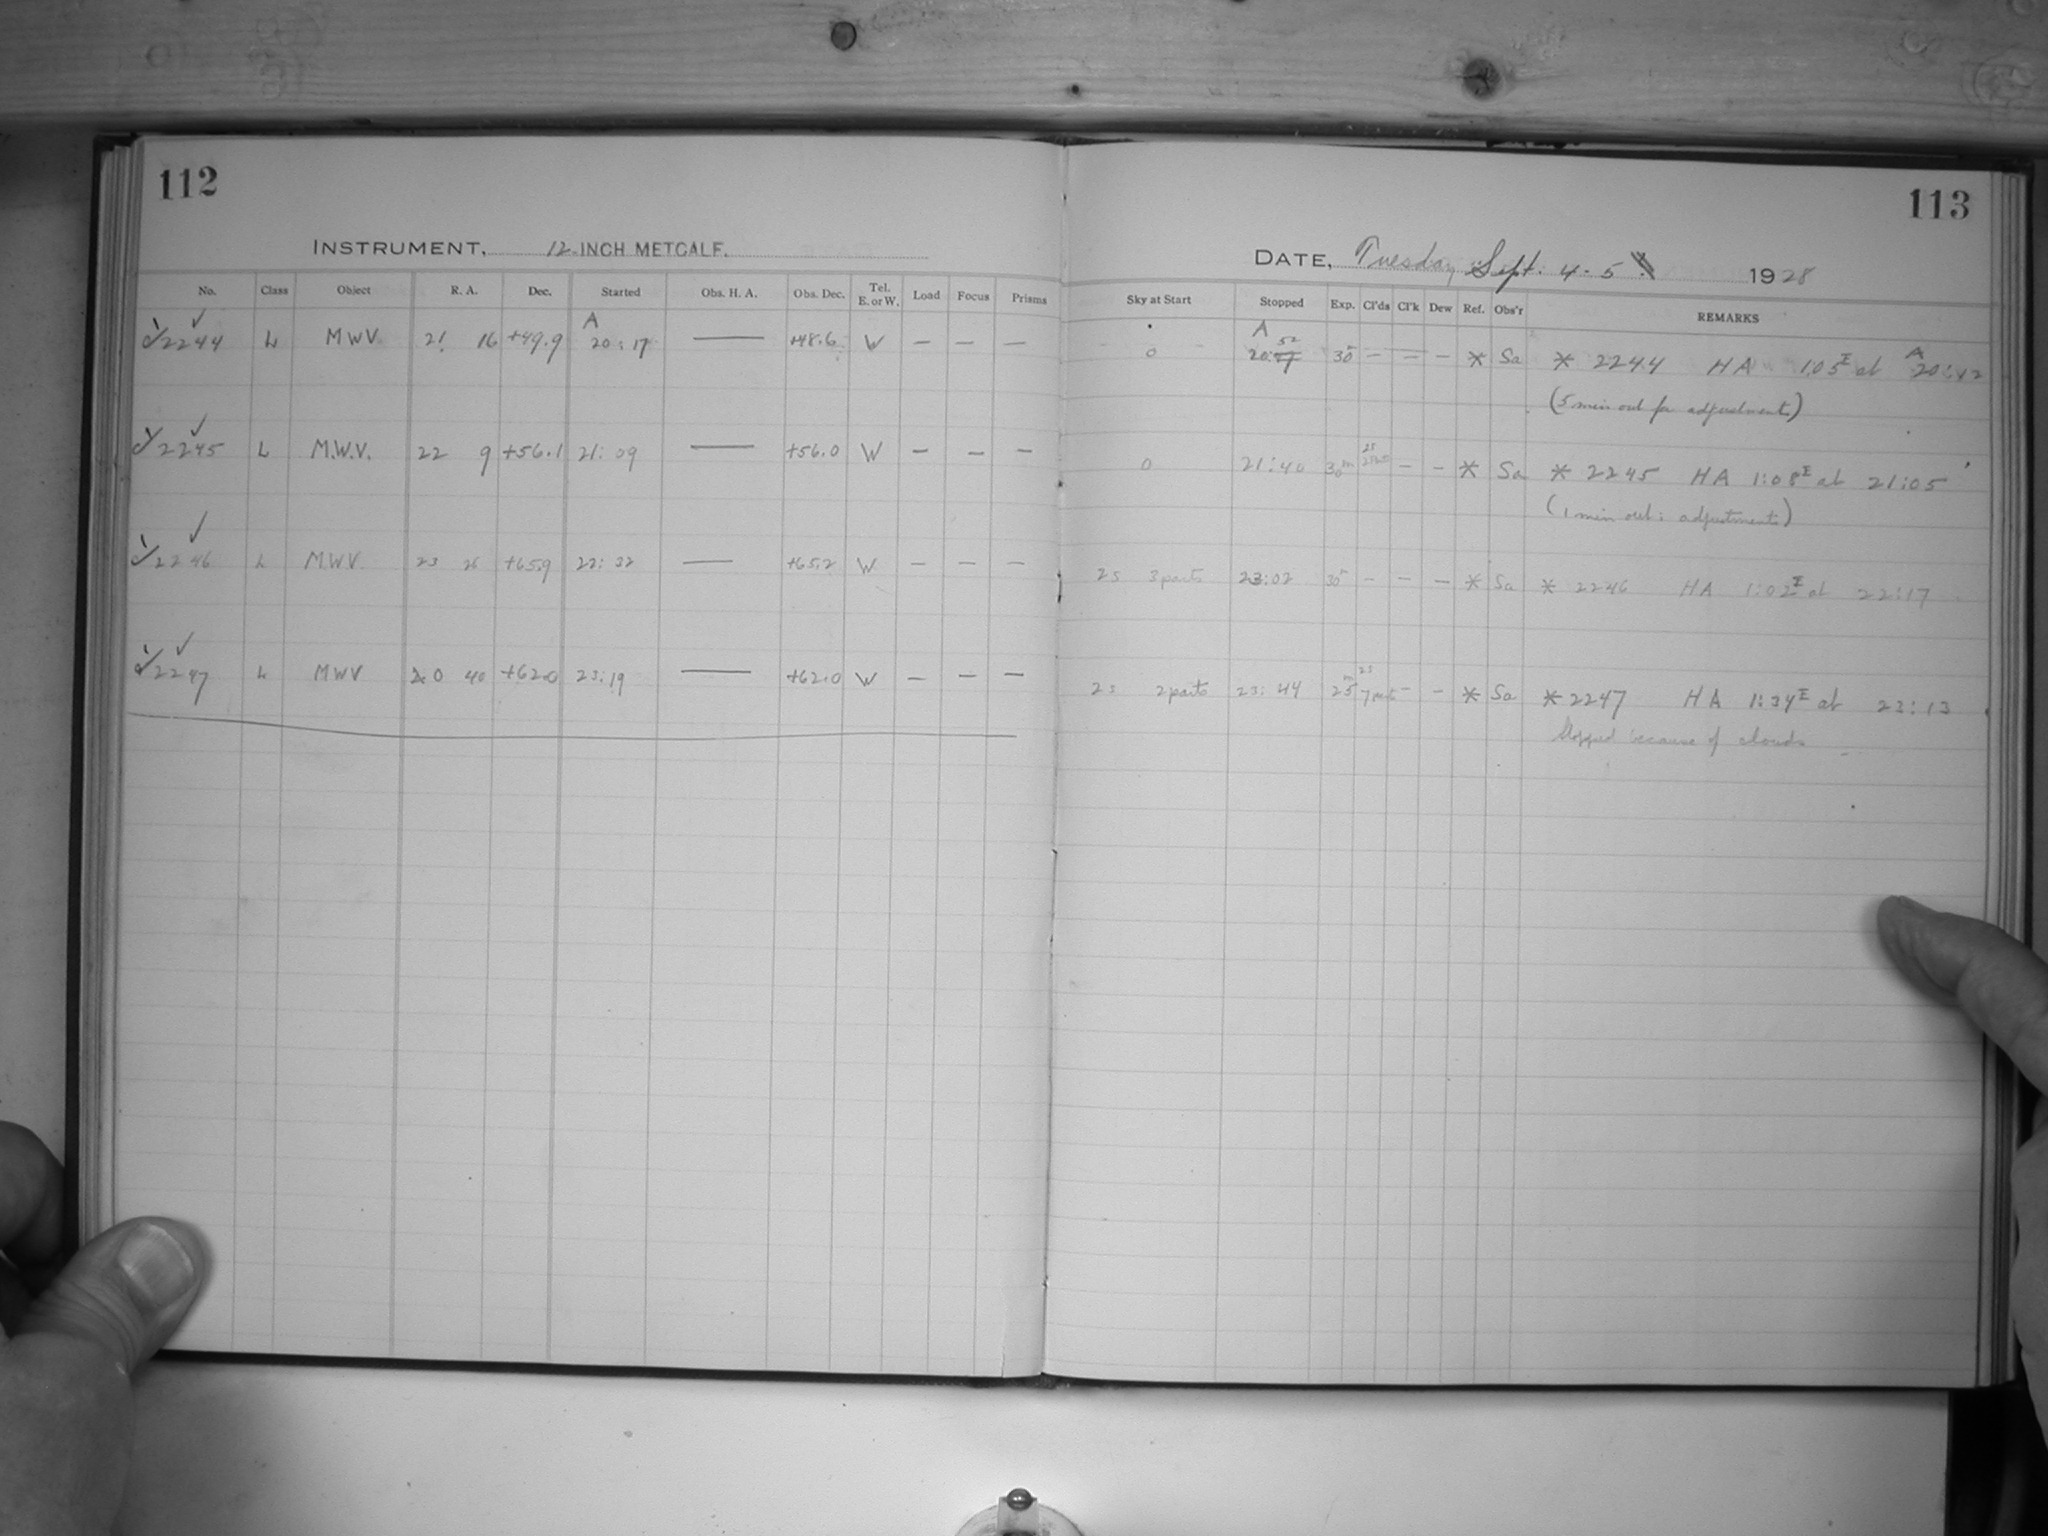 112
INSTRUMENT, 12-INCH METCALF.
No. Class Object R. A. Dec. Started Obs. H. A. Obs. Dec. Tel. E. or W. Load Focus Prisms
2244 L MWV 21 16 +49.9 A 20:17 — +48.6 W — — —
2245 L M.W.V. 22 9 +56.1 21:09 — +56.0 W — — —
2246 L M.W.V. 23 +65.9 22:32 — +65.2 W — — —
2247 L MWV 20 40 +62.0 23:19 — +62.0 W — — —
113
DATE, Tuesday Sept. 4-5 1928
Sky at Start Stopped Exp. Cl'ds Cl'k Dew Ref. Obs'r REMARKS
0 A 20:52 30 — — — * Sa * 2244 HA 1:05 E at A 20:12
(5 min out for adjustments)
0 21:40 30m — — * Sa * 2245 HA 1:08 E at 21:05
(1 min out: adjustments)
25 3 parts 23:02 30m — — — * Sa * 2246 HA 1:02 E at 22:17
25 2 parts 23:44 25m 25 7 parts — — * Sa * 2247 HA 1:34 E at 23:13
Stopped because of clouds